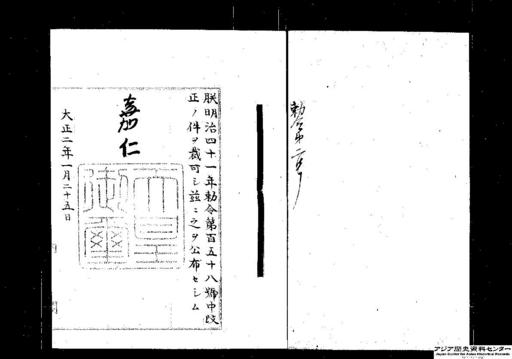 勅令第二号
朕明治四十一年勅令第百五十八號中改
正ノ件ヲ裁可シ茲ニ之ヲ公布セシム
嘉仁
天皇御璽
大正二年一月二十五日
アジア歴史資料センター
Japan Center for Asian Historical Records